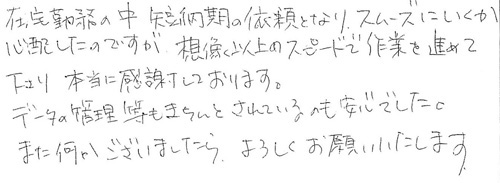 在宅勤務の中 短納期の依頼となり、スムーズにいくか
心配したのですが 想像以上のスピードで作業を進めて
下さり 本当に感謝しております。
データの管理等もきちんとされているのも安心でした。
また何かございましたら、よろしくお願いいたします